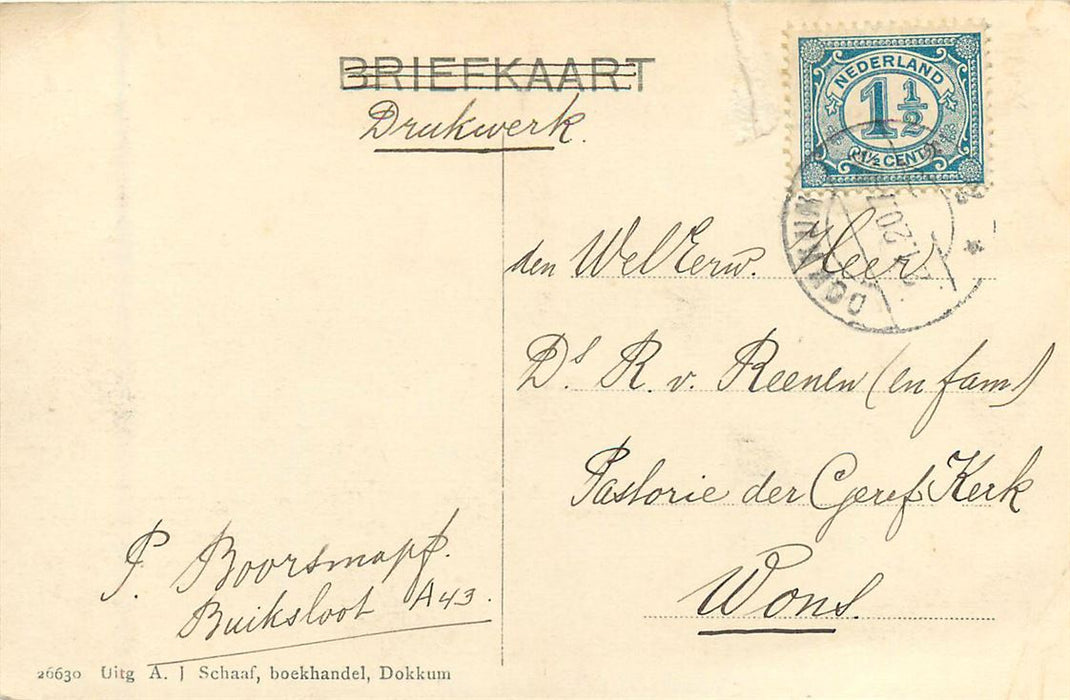 BRIEFKAART
Drukwerk.
NEDERLAND
1 1/2
1½ CENT
den WelEerw. Heer
Ds R. v. Reenen (en fam)
Pastorie der Geref. Kerk
Wons.
P. Boorsma pf.
Buiksloot A43.
26630 Uitg A. J Schaaf, boekhandel, Dokkum